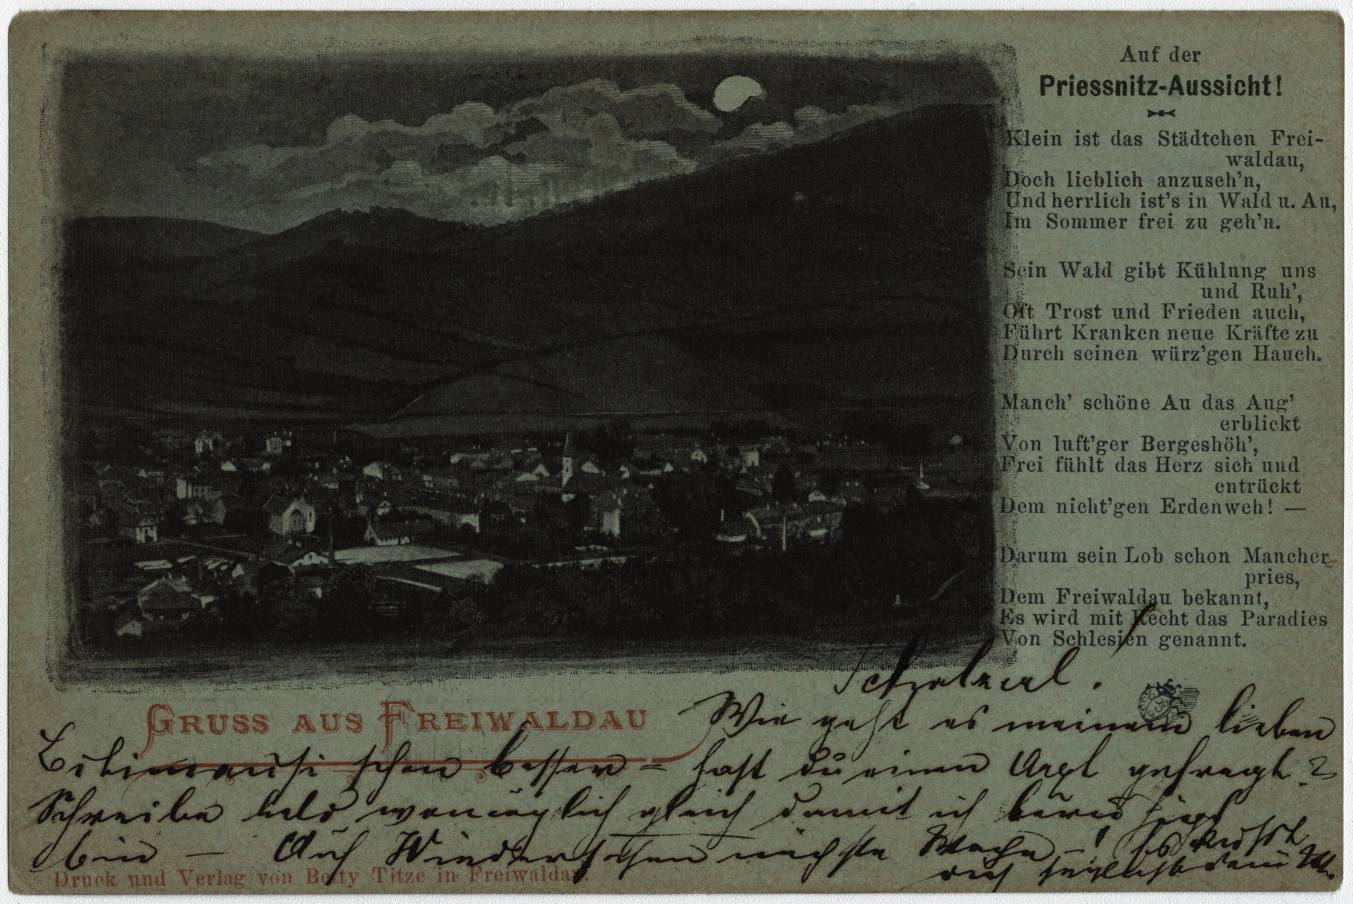 Auf der
Priessnitz-Aussicht!
Klein ist das Städtchen Frei-
waldau,
Doch lieblich anzuseh'n,
Und herrlich ist's in Wald u. Au,
Im Sommer frei zu geh'n.
Sein Wald gibt Kühlung uns
und Ruh',
Oft Trost und Frieden auch,
Führt Kranken neue Kräfte zu
Durch seinen würz'gen Hauch.
Manch' schöne Au das Aug'
erblickt
Von luft'ger Bergeshöh',
Frei fühlt das Herz sich und
entrückt
Dem nicht'gen Erdenweh! —
Darum sein Lob schon Mancher
pries,
Dem Freiwaldau bekannt,
Es wird mit Recht das Paradies
Von Schlesien genannt.
GRUSS AUS FREIWALDAU
Wie geht es meinem lieben
schon besser = hast du einen Arzt gefragt?
Schreibe bald womöglich gleich damit ich
bin — Auf Wiedersehen nächste Woche —!
Druck und Verlag von Betty Titze in Freiwaldau.